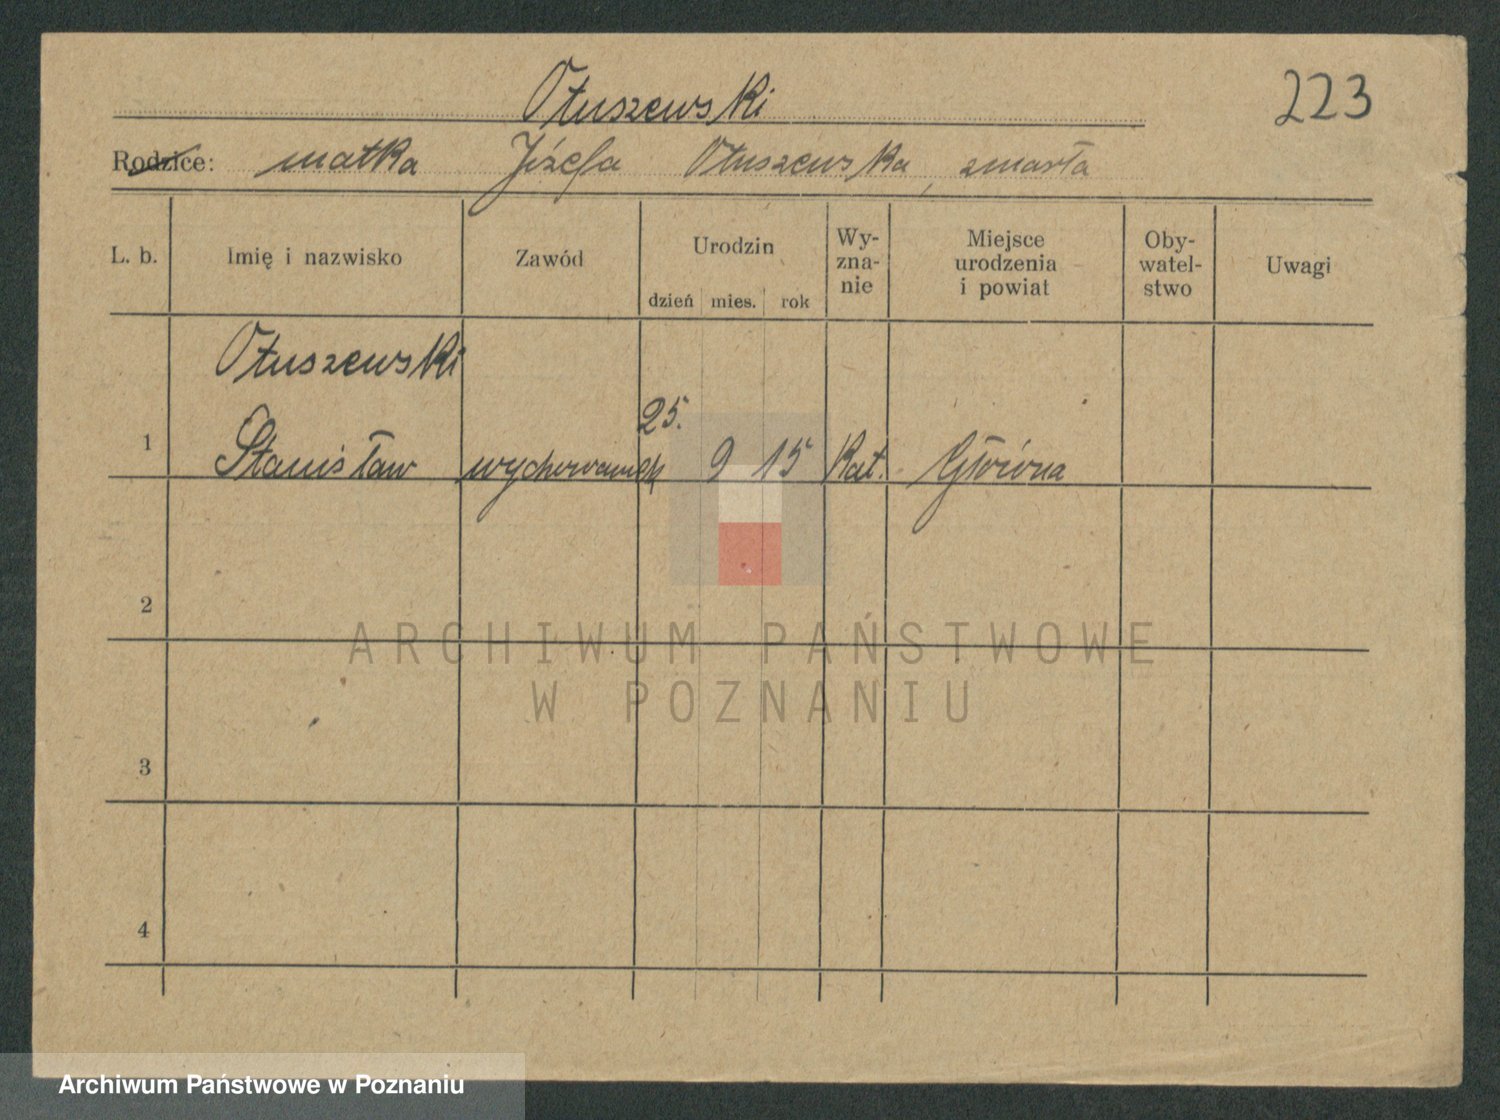 Otuszewski
223
Rodzice: matka Józefa Otuszewska, zmarła
L. b.
Imię i nazwisko
Zawód
Urodzin
dzień mies. rok
Wy-
zna-
nie
Miejsce
urodzenia
i powiat
Oby-
watel-
stwo
Uwagi
Otuszewski
1 Stanisław wychowanek 25. 9 15 Kat. Główna
2
3
4
ARCHIWUM PAŃSTWOWE
W POZNANIU
Archiwum Państwowe w Poznaniu